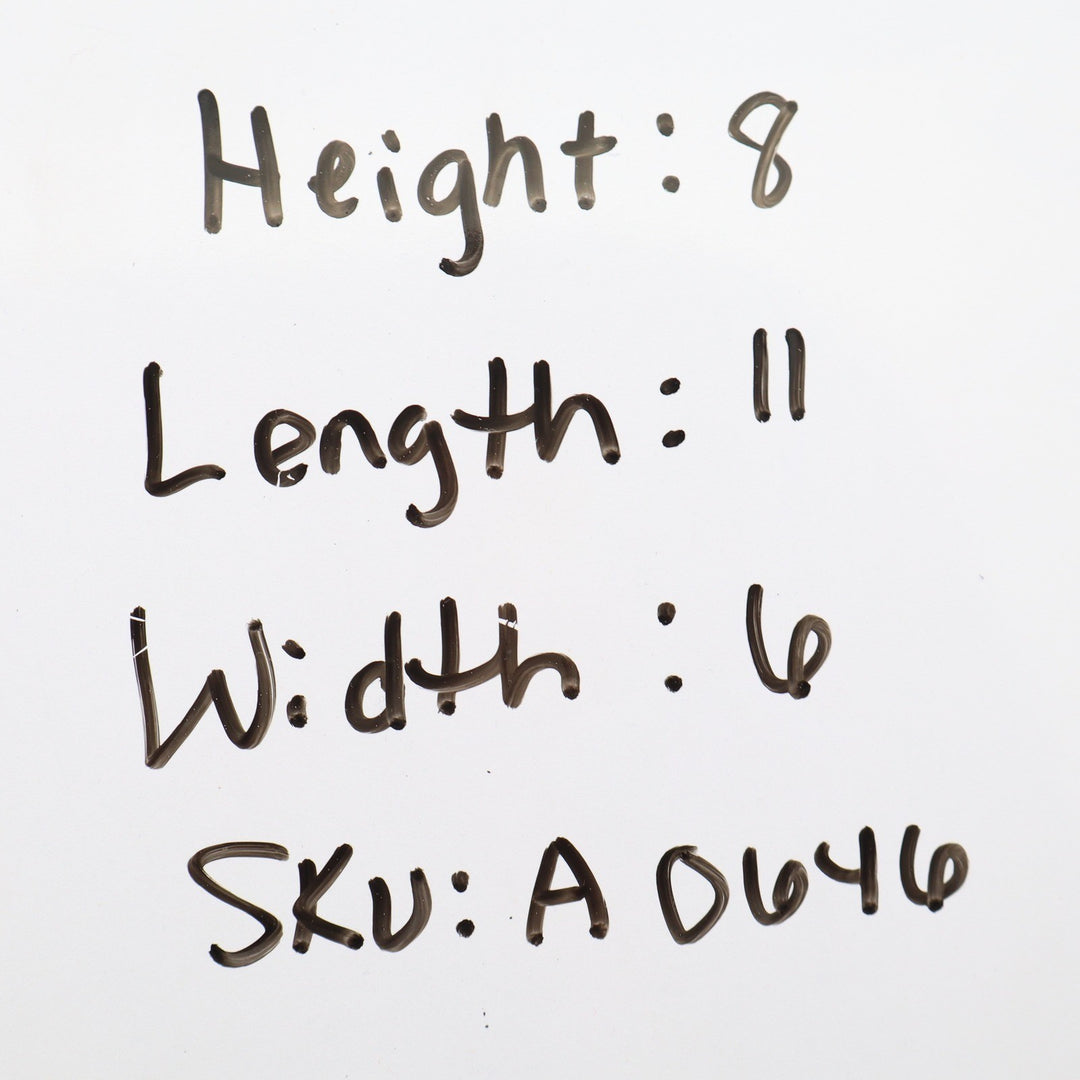 Height: 8
Length: 11
Width: 6
SKU: A0646